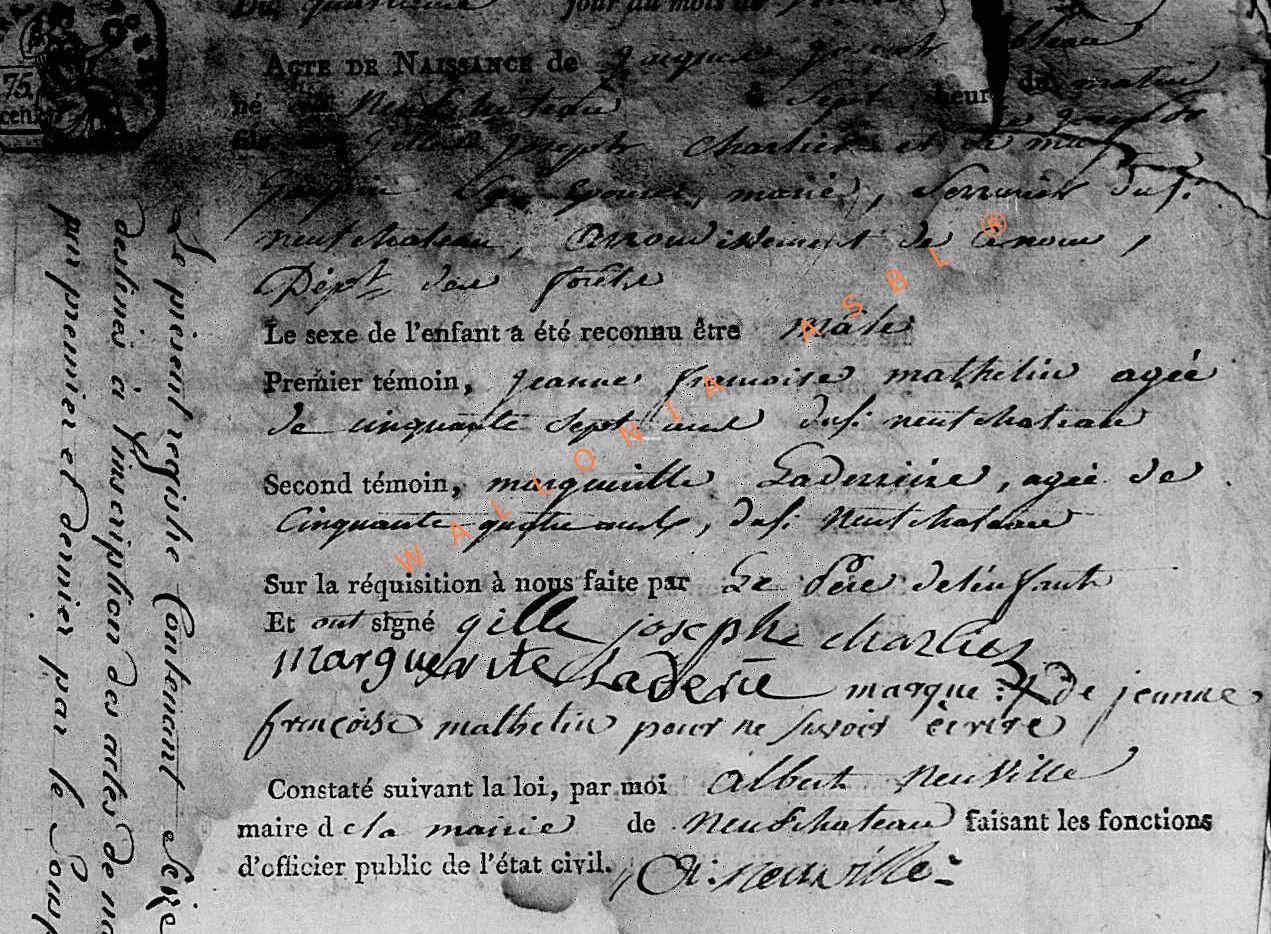 Du jour du mois de
75
cen
ACTE DE NAISSANCE de Jacques
né Neufchateau à Sept heur du matin
Gille Joseph Charlier et de
Son Epouse, marié, Serrurier dud:
neufchateau, arrondissement de
Dépt. des forêts
Le sexe de l'enfant a été reconnu être male
Premier témoin, jeanne francoise mathelin agée
de cinquante sept ans dud: neufchateau
Second témoin, margueritte Laderriere, agée de
Cinquante quatre ans, dud: neufchateau
Sur la réquisition à nous faite par Le Père de l'enfant
Et ont signé gille joseph charlier
marguerite marque: + de jeanne
françoise mathelin pour ne savoir écrire
Constaté suivant la loi, par moi Albert Neuville
maire de la mairie de Neufchateau faisant les fonctions
d'officier public de l'état civil. A: neuville
Le présent registre Contenant
destiné à l'inscription des actes de na
par premier et dernier par le Sous
WALLONIA ASBL ®